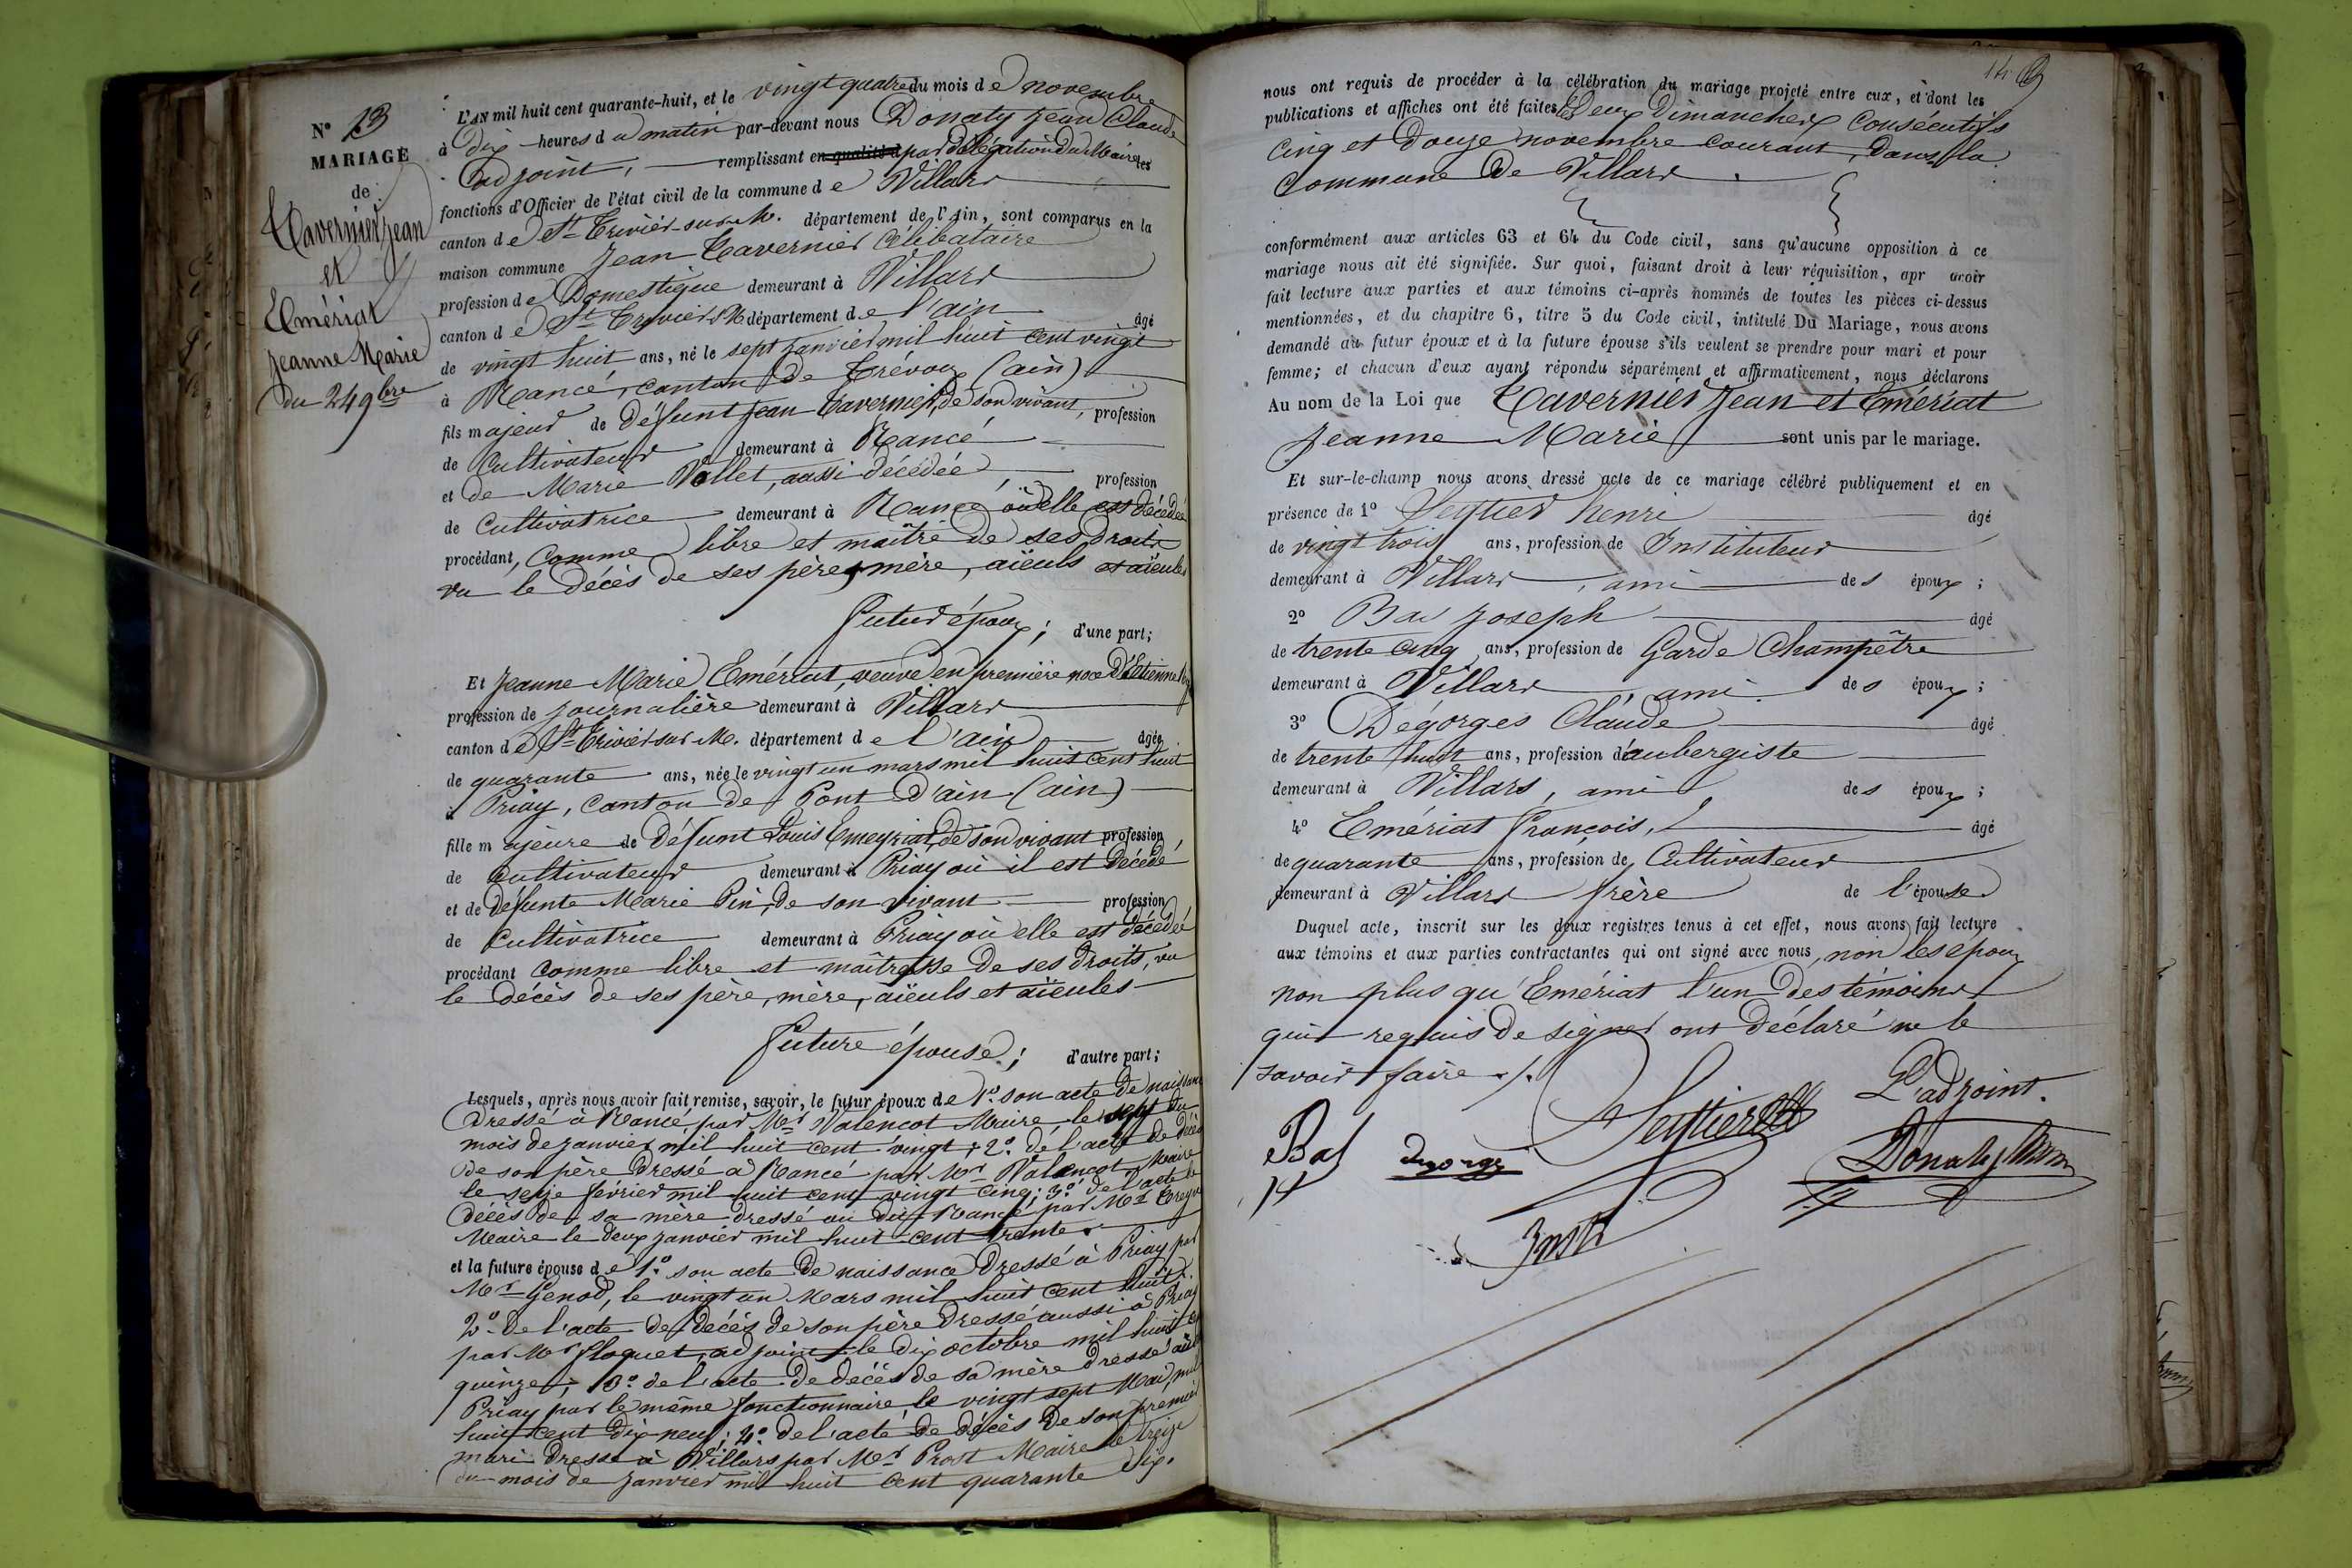 N° 13
MARIAGE
de
Tavernier Jean
et
Emériat
Jeanne Marie
du 24 9bre
L'AN mil huit cent quarante-huit, et le vingt quatre du mois de novembre
à Dix heures du matin par-devant nous Donaty Jean Claude
adjoint, remplissant en qualité d par délégation du Maire les
fonctions d'Officier de l'état civil de la commune de Villars
canton de St Trivier-sur-M. département de l'Ain, sont comparus en la
maison commune Jean Tavernier Célibataire
profession de Domestique demeurant à Villars
canton de St Trivier s M département de l'ain âgé
de vingt huit ans, né le sept janvier mil huit cent vingt
à Rancé, canton de Trévoux (ain)
fils majeur de Défunt Jean Tavernier, de son vivant, profession
de Cultivateur demeurant à Rancé
et de Marie Vollet, aussi décédée, profession
de Cultivatrice demeurant à Rancé où elle est décédée
procédant, Comme libre et maître de ses droits
vu le décès de ses père, mère, aïeuls et aïeules
futur époux; d'une part;
Et Jeanne Marie Emériat, veuve en première noce d'Etienne
profession de journalière demeurant à Villars
canton de St Trivier sur M. département de l'ain âgée
de quarante ans, née le vingt un mars mil huit cent huit
à Priay, Canton de Pont d'ain (ain)
fille majeure de Défunt Louis Emeyriat, de son vivant profession
de Cultivateur demeurant à Priay où il est Décédé
et de défunte Marie Pin, de son vivant profession
de Cultivatrice demeurant à Priay où elle est décédée
procédant comme libre et maîtresse de ses droits, vu
le décès de ses père, mère, aïeuls et aïeules
future épouse; d'autre part;
Lesquels, après nous avoir fait remise, savoir, le futur époux de 1° son acte de naissance
Dressé à Rancé, par Mr Valencot Maire, le sept du
mois de janvier mil huit cent vingt; 2° de l'acte de décès
de son père Dressé à Rancé par Mr Valencot Maire
le seize février mil huit cent vingt cinq; 3° de l'acte de
décès de sa mère dressé au dit Rancé, par Mr
Maire le deux janvier mil huit cent trente
et la future épouse de 1° son acte de naissance Dressé à Priay par
Mr Genod, le vingt un Mars mil huit cent huit;
2° de l'acte de décès de son père dressé aussi à Priay
par Mr Floquet, adjoint le dix octobre mil huit cent
quinze; 3° de l'acte de décès de sa mère dressé au dit
Priay par le même fonctionnaire le vingt sept Mai, mil
huit cent dix neuf; 4° de l'acte de décès de son premier
mari Dressé à Villars par Mr Prost Maire le treize
du mois de janvier mil huit cent quarante dix.
nous ont requis de procéder à la célébration du mariage projeté entre eux, et dont les
publications et affiches ont été faites les deux Dimanches Consécutifs
Cinq et Douze novembre courant, Dans la
Commune de Villars.
conformément aux articles 63 et 64 du Code civil, sans qu'aucune opposition à ce
mariage nous ait été signifiée. Sur quoi, faisant droit à leur réquisition, apr avoir
fait lecture aux parties et aux témoins ci-après nommés de toutes les pièces ci-dessus
mentionnées, et du chapitre 6, titre 5 du Code civil, intitulé Du Mariage, nous avons
demandé au futur époux et à la future épouse s'ils veulent se prendre pour mari et pour
femme; et chacun d'eux ayant répondu séparément et affirmativement, nous déclarons
Au nom de la Loi que Tavernier Jean et Emériat
Jeanne Marie sont unis par le mariage.
Et sur-le-champ nous avons dressé acte de ce mariage célébré publiquement et en
présence de 1° Seytier henri âgé
de vingt trois ans, profession de Instituteur
demeurant à Villars, ami des époux;
2° Bas Joseph âgé
de trente cinq ans, profession de Garde Champêtre
demeurant à Villars, ami des époux;
3° Dégorges Claude âgé
de trente huit ans, profession d'aubergiste
demeurant à Villars, ami des époux;
4° Emériat François, âgé
de quarante ans, profession de Cultivateur
demeurant à Villars frère de l'épouse
Duquel acte, inscrit sur les deux registres tenus à cet effet, nous avons fait lecture
aux témoins et aux parties contractantes qui ont signé avec nous, non les époux
non plus qu'Emériat l'un des témoins
qui requis de signer ont déclaré ne le
savoir faire ./.
L'adjoint.
Seytier
Bas
Degorge
Donaty
Instr